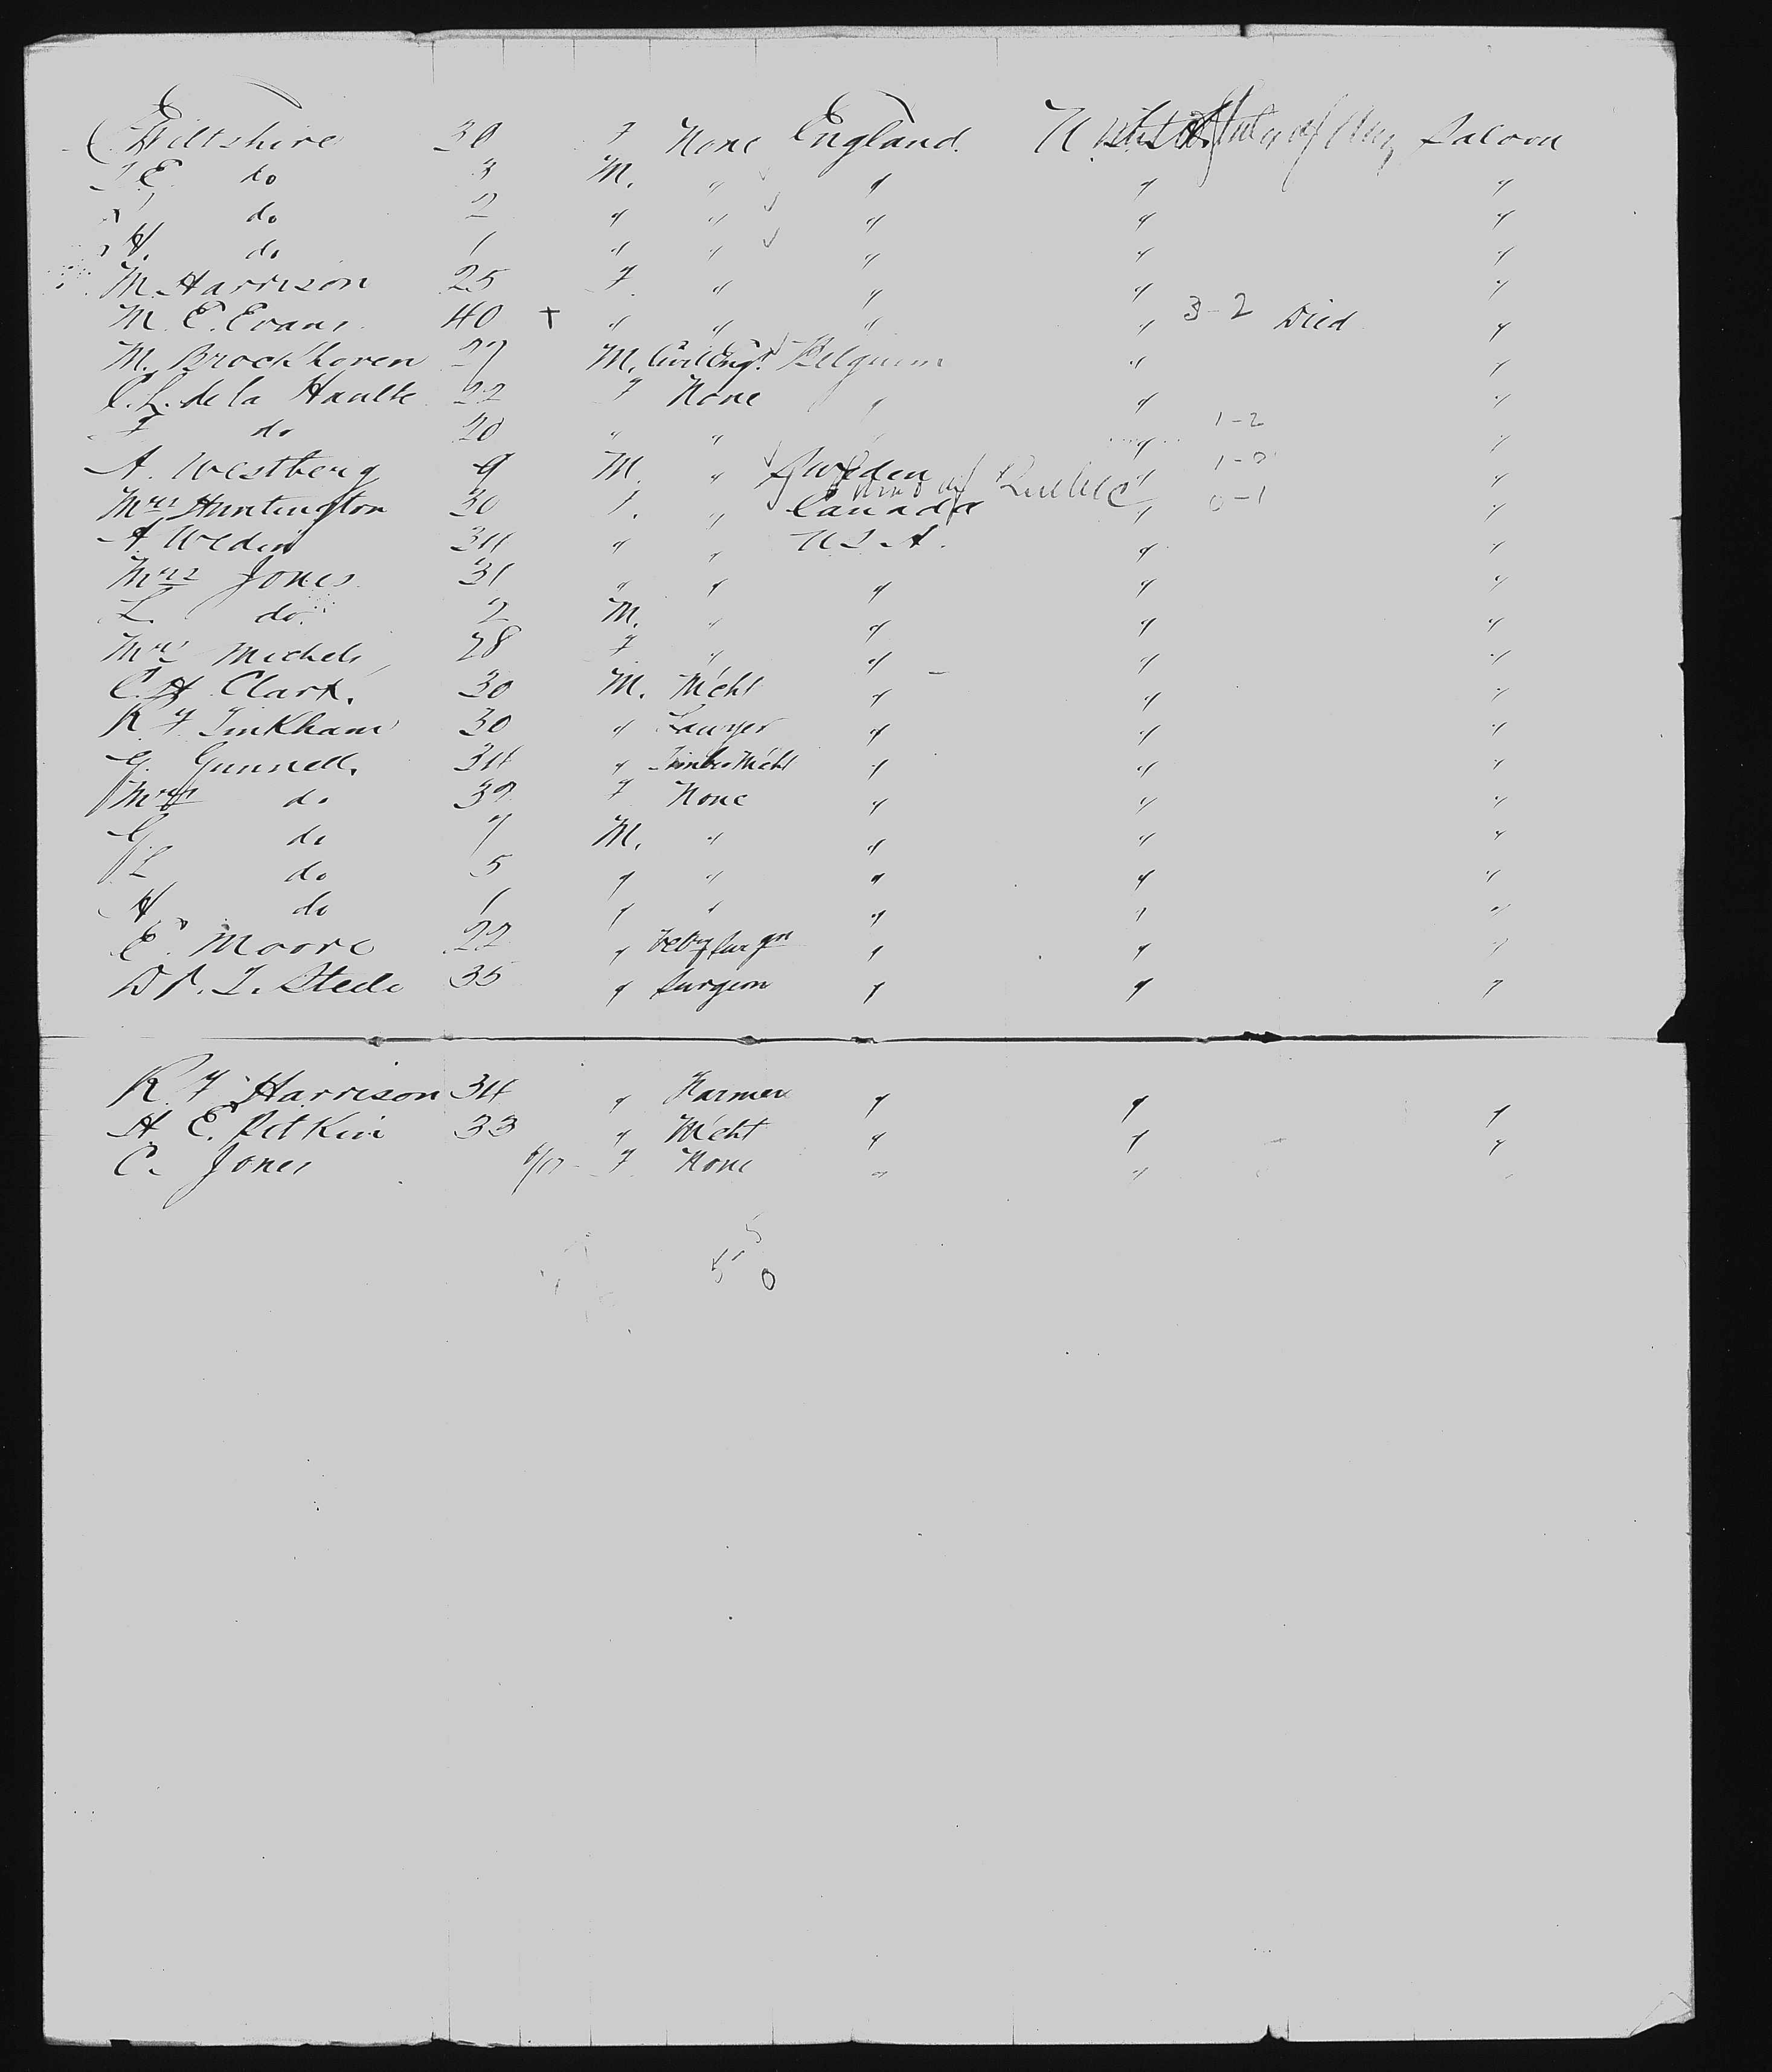 Wiltshire 30 F None England United States of Saloon
T.E. do 3 M. " " " "
do 2 " " " " "
H. do 1 " " " " "
M. Harrison 25 F. " " " "
M. E. Evans 40 + " " " " 3-2 Died "
M. Brockhoven 27 M. Civil Engr Belgium " "
C. L. de la Haulte 22 F None " " "
F do 20 " " " " 1-2 "
A. Westberg 9 M. " Sweden " 1-0 "
Mrs Huntington 30 F. " Canada Quebec " 0-1 "
A. Weden 34 " " U.S.A. " "
Mrs Jones 31 " " " " "
L. do. 2 M. " " " "
Mrs Michels 28 F " " " "
C. H. Clark. 30 M. Mcht " " "
R F Tinkham 30 " Lawyer " " "
G. Gunnell. 34 " Timber Mcht " " "
Mrs do 32 F None " " "
G. do 7 M. " " " "
L do 5 " " " " "
H do 1 " " " " "
E. Moore 22 " Vety Surgn " " "
Dr. T. Steele 35 " Surgeon " " "
R. F. Harrison 34 " Farmer " " "
H. E. Pitkin 33 " Mcht " " "
C. Jones F None " " "
5
5 0